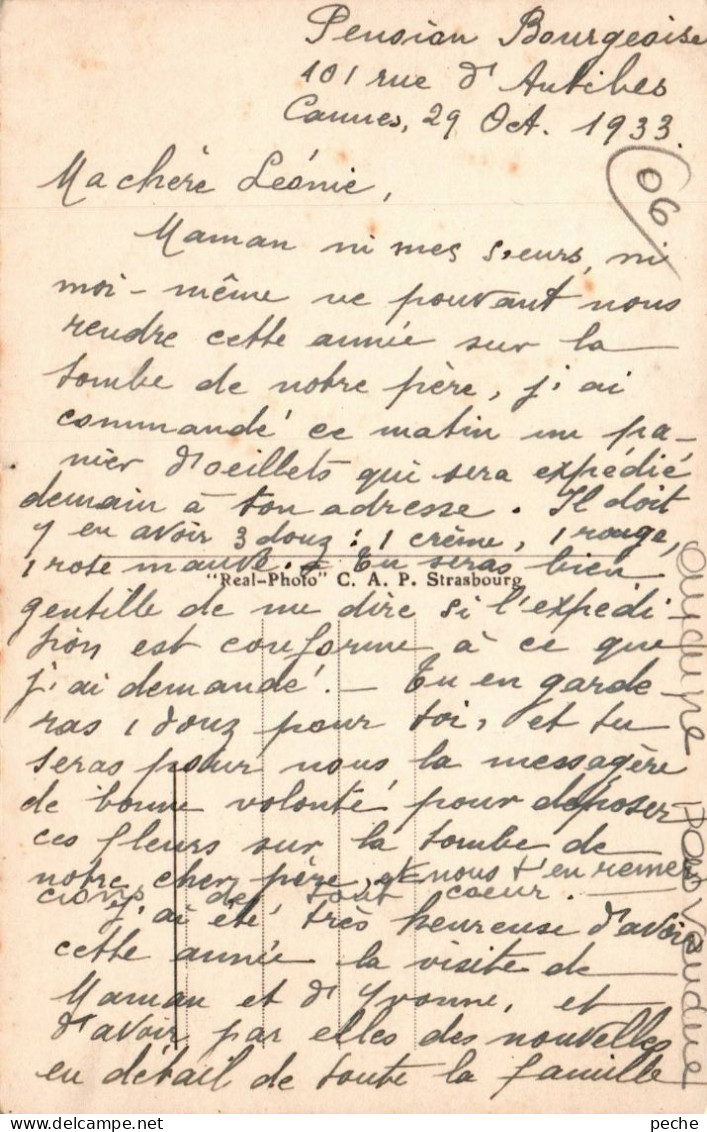 Pension Bourgeoise
101 rue d'Antibes
Cannes, 29 Oct. 1933.
06
Ma chère Léonie,
Maman ni mes sœurs, ni
moi-même ne pouvant nous
rendre cette année sur la
tombe de notre père, j'ai
commandé ce matin un pa-
nier d'oeillets qui sera expédié
demain à ton adresse. Il doit
y en avoir 3 douz: 1 crème, 1 rouge,
1 rose mauve. - Tu seras bien
"Real-Photo" C. A. P. Strasbourg
gentille de me dire si l'expédi
tion est conforme à ce que
j'ai demandé. - Tu en garde
ras 1 douz pour toi, et tu
seras pour nous la messagère
de bonne volonté pour déposer
ces fleurs sur la tombe de
notre cher père, et nous t'en remer
cions de tout coeur.
J'ai été très heureuse d'avoir
cette année la visite de
Maman et d'Yvonne, et
d'avoir par elles des nouvelles
en détail de toute la famille
peche